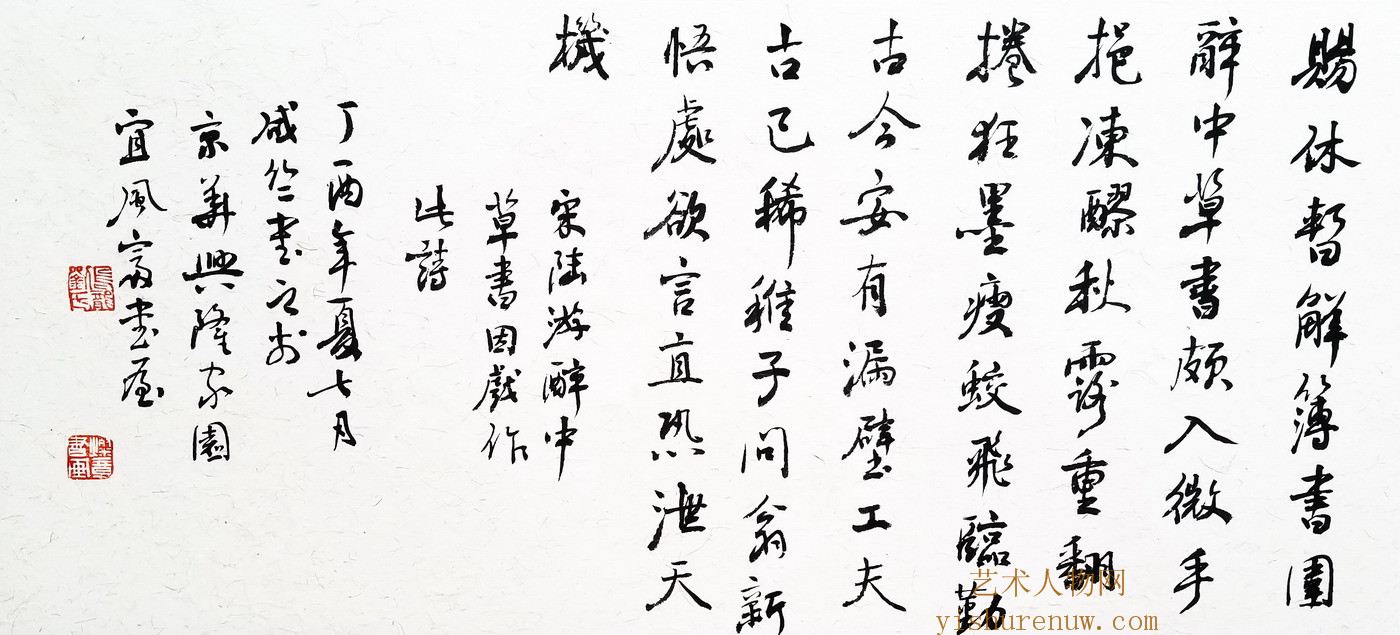 賜休暫解簿書圍
醉中草書頗入微手
挹凍醪秋露重翻
捲狂墨瘦蛟飛臨勤
古今安有漏壁工夫
古已稀稚子問翁新
悟處欲言直恐泄天
機
宋陸游醉中
草書因戲作
此詩
丁酉年夏七月
咸竺書之於
京華興隆家園
宜風富書屋
艺术人物网
yishurenuw.com